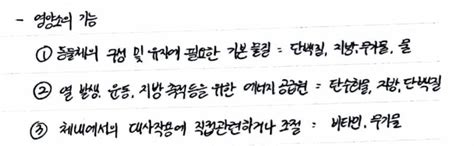 - 영양소의 기능
① 동물체의 구성 및 유지에 필요한 기본 물질 = 단백질, 지방, 무기물, 물
② 열 발생, 운동, 지방 축적 등을 위한 에너지 공급원 = 탄수화물, 지방, 단백질
③ 체내에서의 대사작용에 직접 관련하거나 조절 = 비타민, 무기물